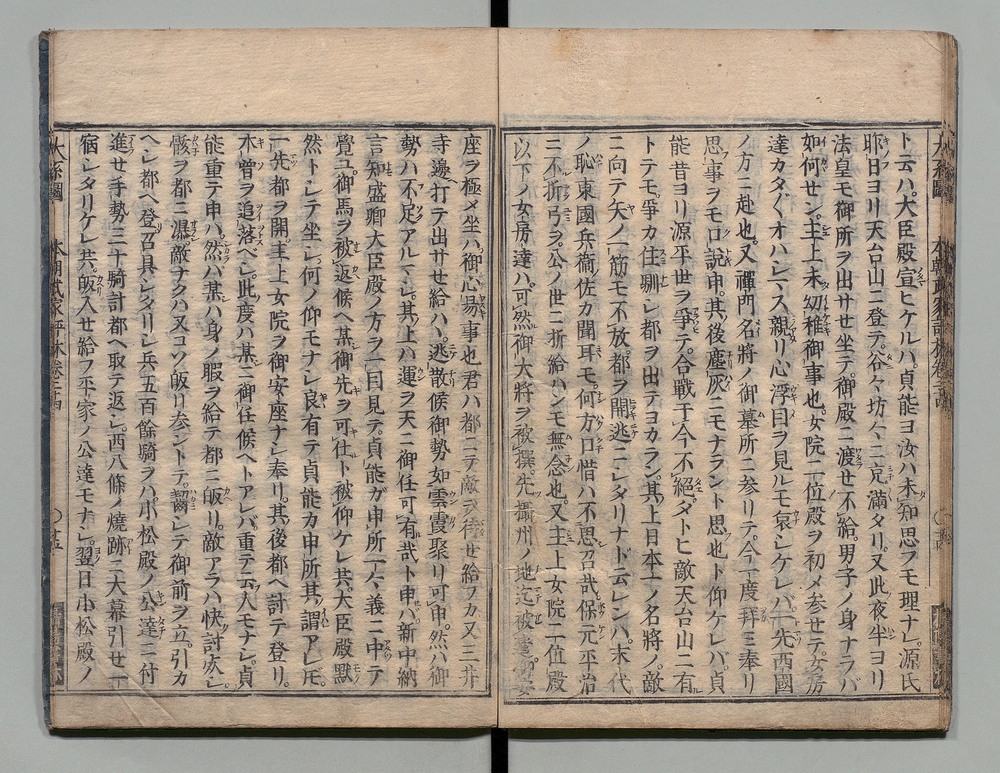 ト云ハ。大臣殿宣ヒケルハ。貞能ヨ汝ハ未ダ知思フモ理ナレ。源氏
昨日ヨリ天台山ニ登テ。谷々坊々ニ充満タリ。又此夜半ヨリ
法皇モ御所ヲ出サセ坐テ。御殿ニ渡セ不給。男子ノ身ナラバ
如何セン。主上未幼稚御事也。女院二位殿ヲ初メ参セテ。女房
達カタ〱オハレニ親リ心浮目ヲ見ルモ哀シケレバ。一先西國
ノ方ニ赴也。又禪門名將ノ御墓所ニ参リテ。今一度拜ミ奉リ
思事ヲモロ説申。其後塵灰ニモナラント思也ト仰ケレバ。貞
能昔ヨリ源平世ヲ爭テ。合戰于今不絕。タトヒ敵天台山ニ有
トテモ。爭カ住馴レ都ヲ出テヨカラン。其上日本一ノ名將ノ。敵
ニ向テ矢ノ一筋モ不放。都ヲ開逃ニレタリナド云レンハ。末代
ノ恥。東國兵衞佐カ聞耳モ。何方口惜ハ不思召哉。保元平治
ニ不折弓ヲ。公ノ世ニ折給ハンモ無念也。又主上女院二位殿
以下ノ女房達ハ。可然御大將ヲ被撰。先攝州ノ地迄被
座ヲ極メ坐ハ。御心易事也。君ハ都ニテ敵ヲ待セ給フカ。又三井
寺邊ヘ打テ出サセ給ハヽ。逃散候御勢如雲霞聚リ可申。然ハ御
勢ハ不足アルマシ。其上ハ運ヲ天ニ御任可有哉ト申ハ。新中納
言知盛卿大臣殿ノ方ヲ一目見テ。貞能ガ申所一々義ニ中テ
覺ユ。御馬ヲ被返候ヘ。某御先ヲ可仕ト被仰ケレ共。大臣殿默
然トシテ坐シ。何ノ仰モナシ。良有テ貞能カ申所其謂アレ𪜈。
一先都ヲ開主上女院ヲ御安座ナシ奉リ。其後都ヘ討テ登リ。
木曾ヲ追落ベシ。此度ハ某ニ御任候ヘトアレバ。重テ云人モナシ。貞
能重テ申ハ。然ハ某ハ身ノ暇ヲ給テ都ニ皈リ。敵アラハ快討死シ。
骸ヲ都ニ曝。敵ナクハ又コソ皈リ参ントテ。齧シテ御前ヲ立。引カ
ヘシ都ヘ登。召具シタリシ兵五百餘騎ヲハ。小松殿ノ公達ニ付
進セ。手勢三十騎計都ヘ取テ返シ。西八條ノ燒跡ニ大幕引セ一
宿シタリケレ共。皈入セ給フ平家ノ公達モナシ。翌日小松殿ノ